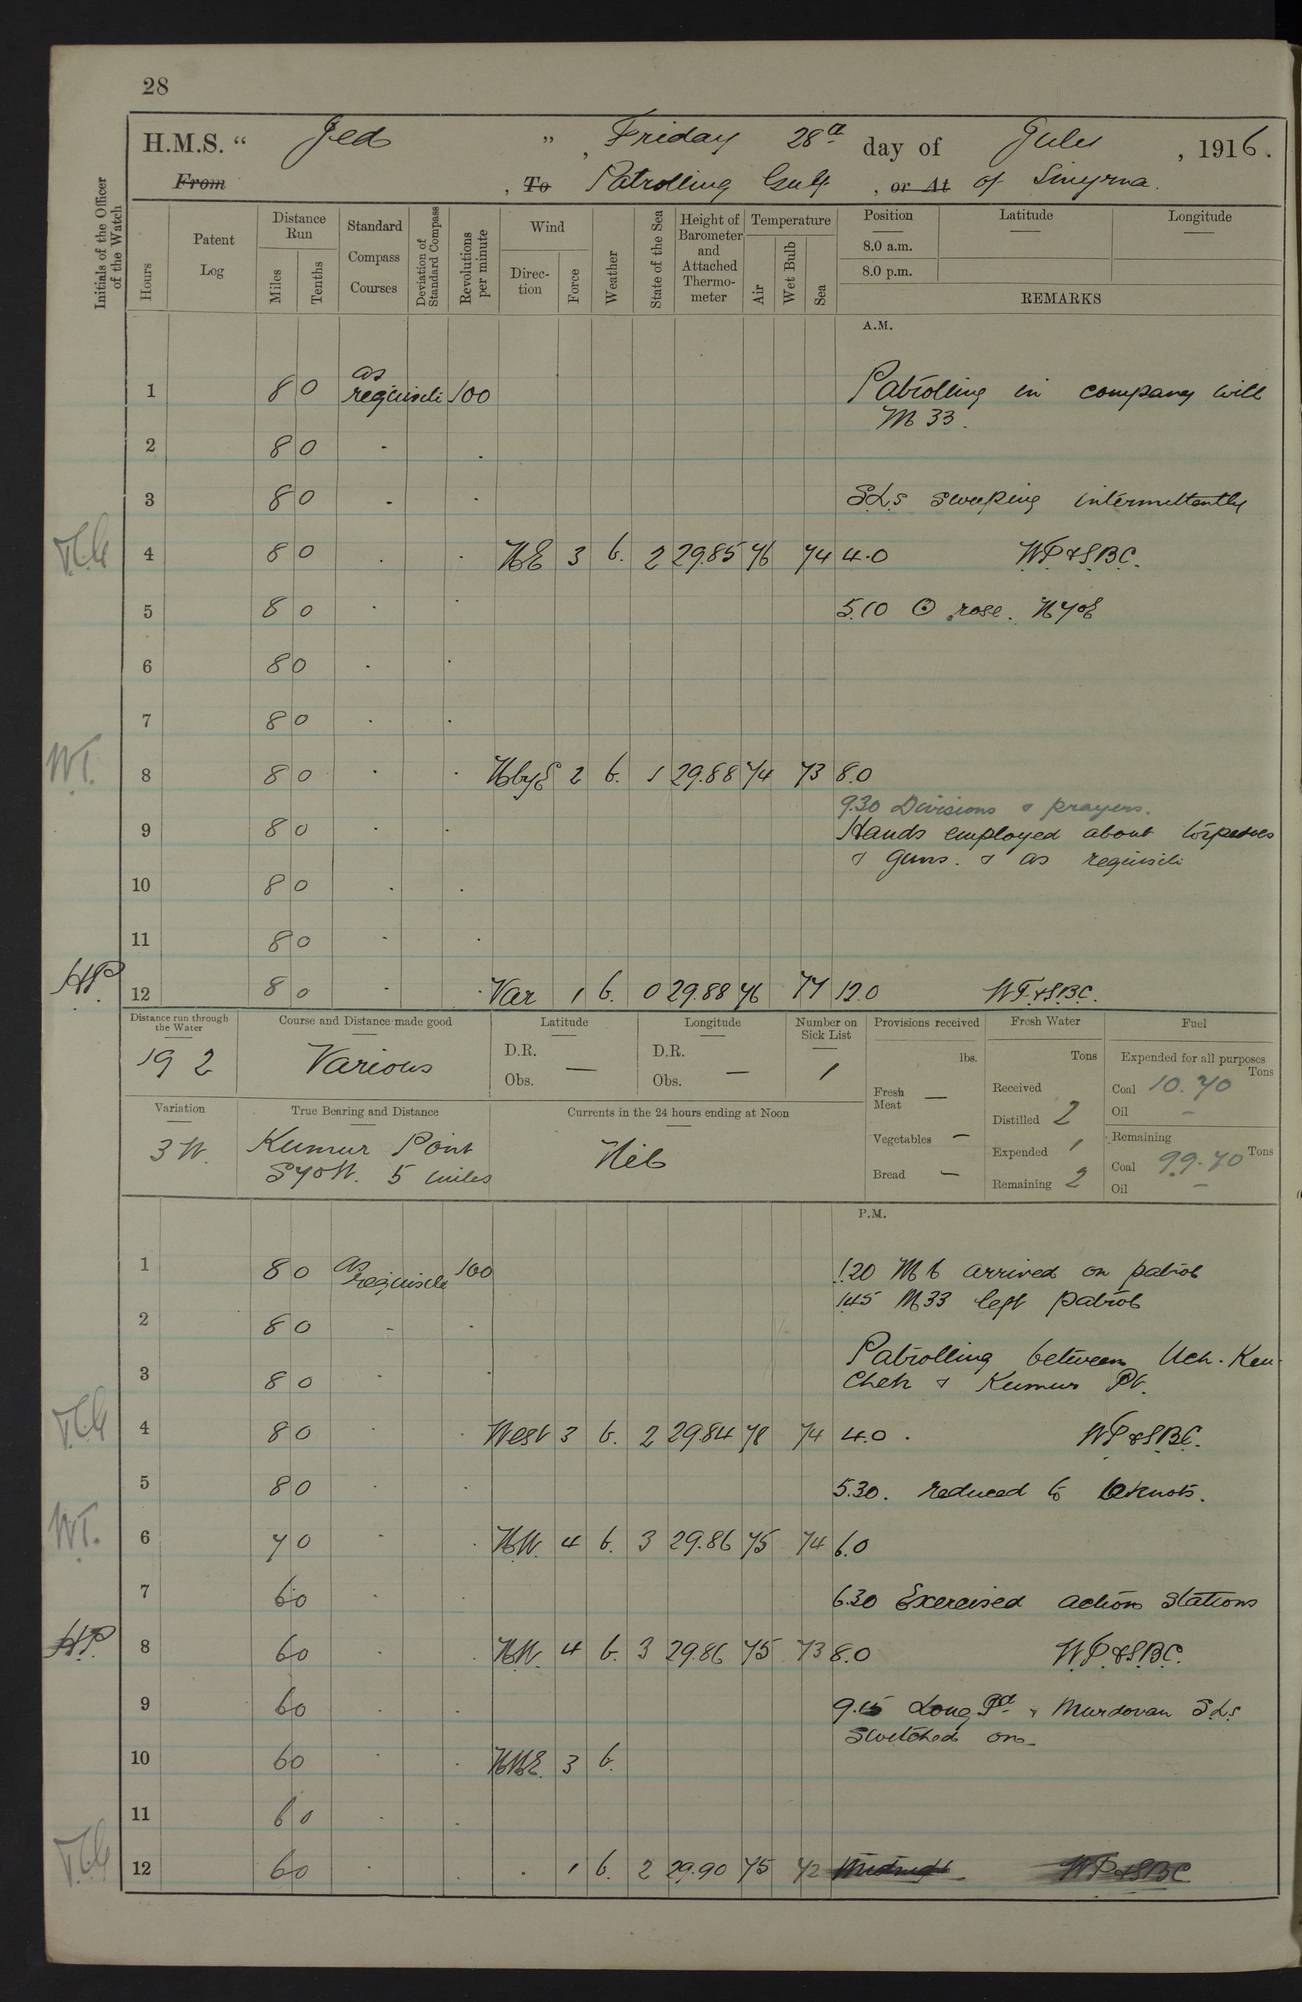 28
H.M.S. “ Jed ” , Friday 28th day of July , 1916.
From , To Patrolling Gulf , or At of Smyrna.
Initials of the Officer of the Watch
Hours
Patent Log
Distance Run
Miles
Tenths
Standard Compass Courses
Deviation of Standard Compass
Revolutions per minute
Wind
Direction
Force
Weather
State of the Sea
Height of Barometer and Attached Thermometer
Temperature
Air
Wet Bulb
Sea
Position Latitude Longitude
8.0 a.m.
8.0 p.m.
REMARKS
A.M.
1 8 0 as requisite 100 Patrolling in company with
M 33.
2 8 0 - .
3 8 0 - . S.Ls sweeping intermittently
4 8 0 . . NE 3 b. 2 29.85 76 74 4.0 W.P. & S.B.C.
5 8 0 . . 5.10 ☉ rose. N70E
6 8 0 . .
7 8 0 . .
W.T. 8 8 0 . . NbyE 2 b. 1 29.88 74 73 8.0
9.30 Divisions & prayers.
9 8 0 . . Hands employed about torpedoes
& guns. & as requisite
10 8 0 . .
11 8 0 - .
HP. 12 8 0 - . Var 1 b. 0 29.88 76 77 12.0 W.T. & S.B.C.
Distance run through the Water
Course and Distance made good
Latitude
Longitude
Number on Sick List
Provisions received
Fresh Water
Fuel
19 2 Various D.R. Obs. — D.R. Obs. — 1
lbs. Tons
Expended for all purposes Tons
Fresh Meat —
Received
Coal 10.70
Distilled 2
Oil -
Variation
True Bearing and Distance
Currents in the 24 hours ending at Noon
3 W.
Kumur Point
S70W. 5 miles
Nil
Vegetables —
Expended 1
Remaining Tons
Bread —
Remaining 2
Coal 99.70
Oil -
P.M.
1 8 0 as requisite 100 1.20 M 6 arrived on patrol
1.45 M33 left patrol
2 8 0 - .
Patrolling between Uch. Ken
3 8 0 . . Chek & Kumur Pt.
4 8 0 . . West 3 b. 2 29.84 78 74 4.0 . W.P. & S.B.C.
5 8 0 . . 5.30. reduced to 6 knots.
W.T. 6 7 0 - . NW. 4 b. 3 29.86 75 74 6.0
7 6 0 . . 6.30 Exercised action stations
H.P. 8 6 0 . . NW. 4 b. 3 29.86 75 73 8.0 W.P. & S.B.C.
9 6 0 . . 9.15 Long Id & Murdovan S.Ls
switched on.
10 6 0 . . NNE. 3 b.
11 6 0 . .
12 6 0 . . . 1 b. 2 29.90 75 72 Midnight W.P. & S.B.C